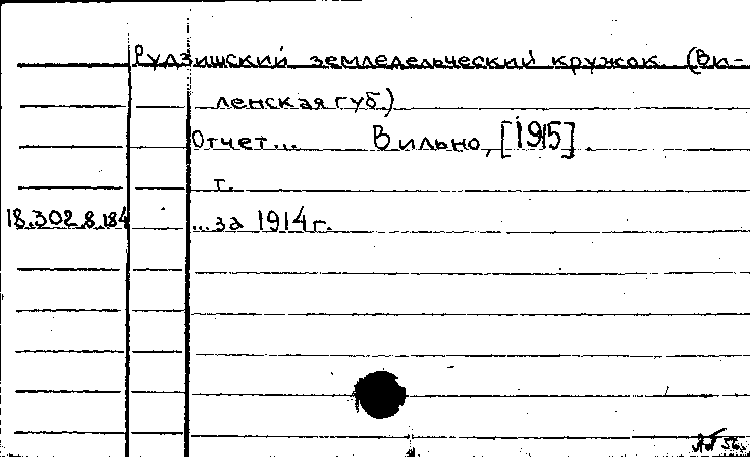 Рудзишский земледельческий кружок (Ви-
ленская губ.)
Отчет... Вильно, [1915].
т.
18.302.8.184 ...за 1914 г.